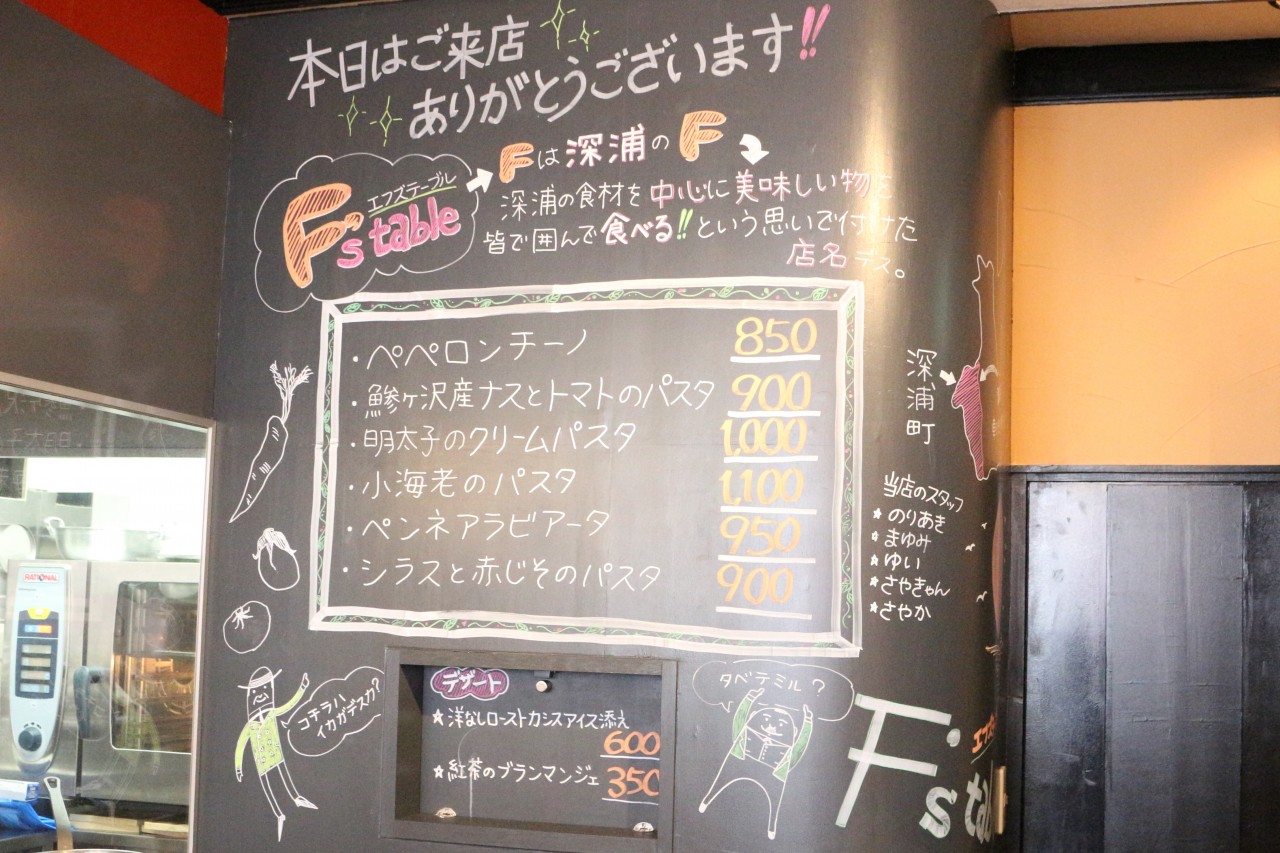 本日はご来店
ありがとうございます!!
エフズテーブル
F's table
Fは深浦のF
深浦の食材を中心に美味しい物を
皆で囲んで食べる!!という思いで付けた
店名デス。
・ペペロンチーノ 850
・鰺ヶ沢産ナスとトマトのパスタ 900
・明太子のクリームパスタ 1,000
・小海老のパスタ 1,100
・ペンネアラビアータ 950
・シラスと赤じそのパスタ 900
深浦町
当店のスタッフ
★のりあき
★まゆみ
★ゆい
★さやきゃん
★さやか
コチラハ
イカガデスカ?
デザート
★洋なしローストカシスアイス添え
600
★紅茶のブランマンジェ 350
タベテミル?
F's
RATIONAL